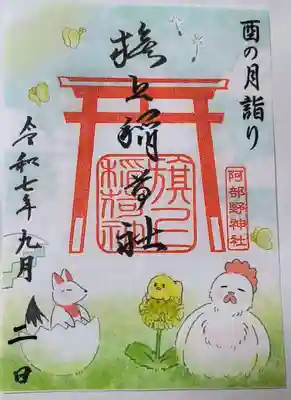 酉の月詣り
旗上稲荷社
阿部野神社
令和七年九月二日